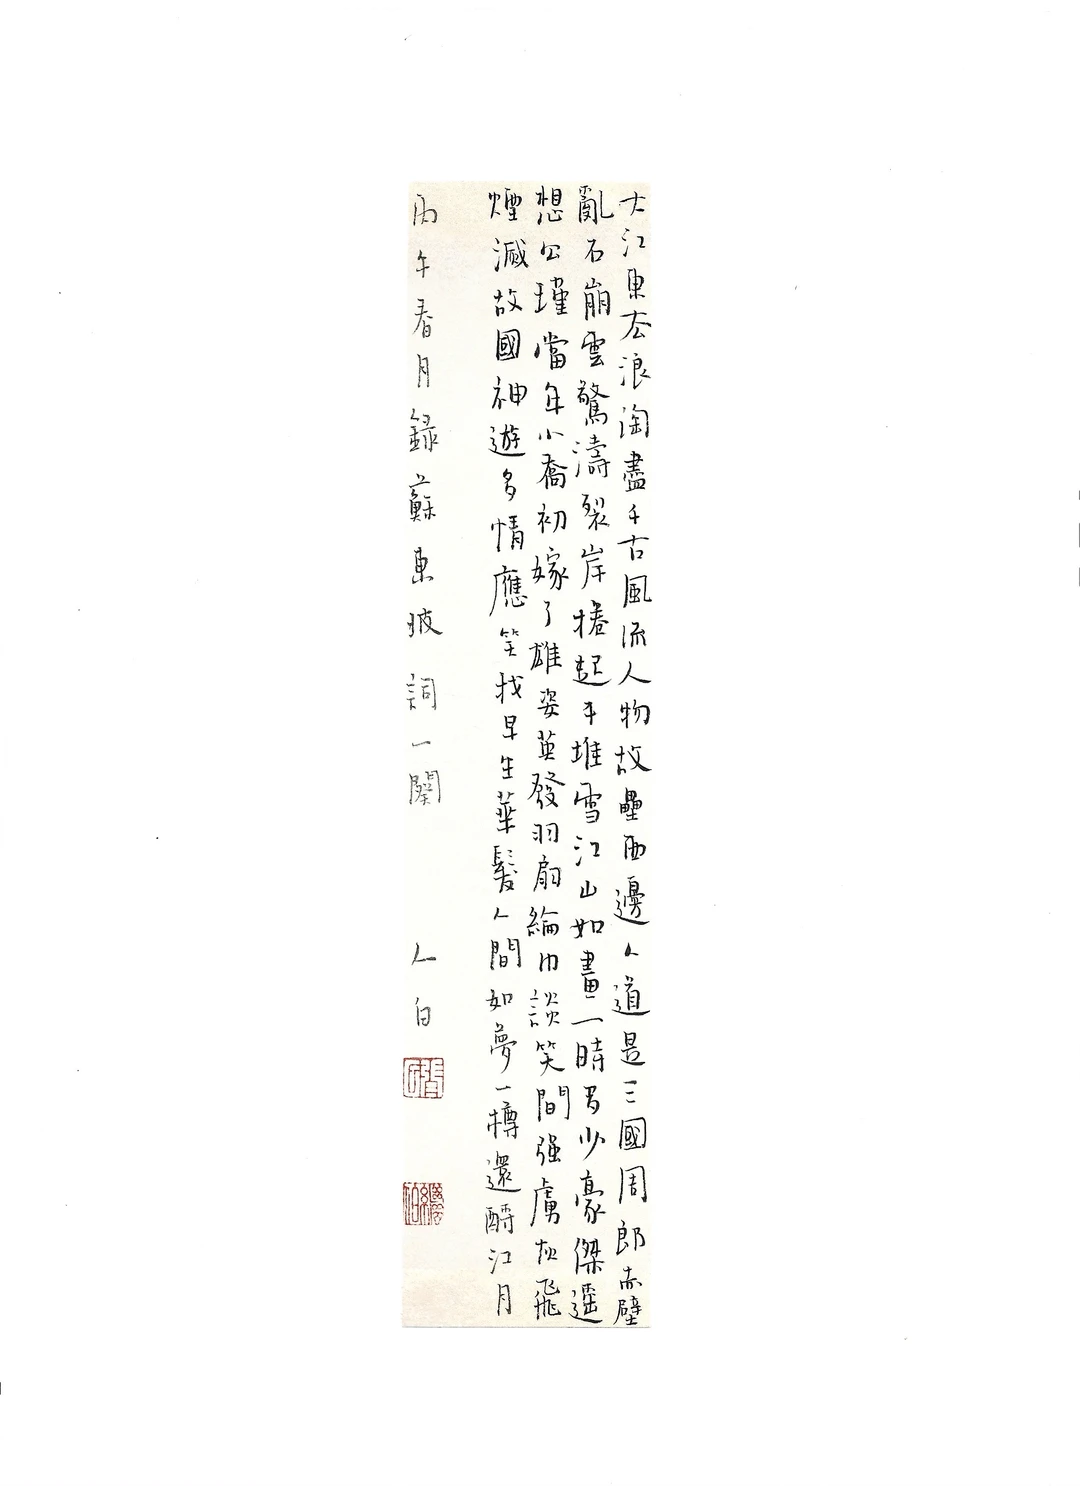 大江東去浪淘盡千古風流人物故壘西邊人道是三國周郎赤壁
亂石崩雲驚濤裂岸捲起千堆雪江山如畫一時多少豪傑遥
想公瑾當年小喬初嫁了雄姿英發羽扇綸巾談笑間强虜灰飛
煙滅故國神遊多情應笑我早生華髮人間如夢一樽還酹江月
丙午春月錄蘇東坡詞一闋 人白